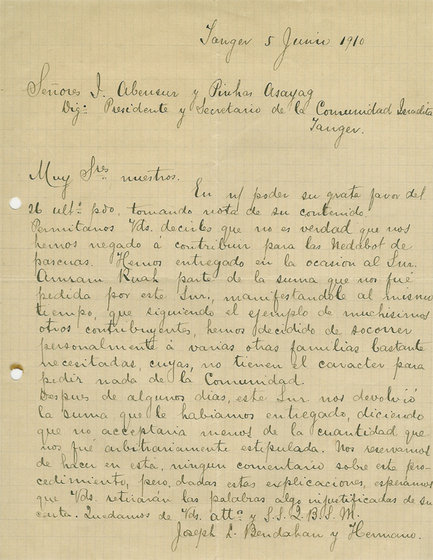 Tanger 5 Junio 1910
Señores I. Abensur y Pinhas Asayag
Dig: Presidente y Secretario de la Comunidad Israelita
Tanger.
Muy Sres nuestros.
En n/ poder su grata favor del
26 ultº pdo, tomando nota de su contenido.
Permitanos Vds. decirles que no es verdad que nos
hemos negado á contribuir para las Nedabot de
pascuas. Hemos entregado en la ocasion al Snr.
Amram Ruah parte de la suma que nos fué
pedida por este Snr., manifestandole al mismo
tiempo, que siguiendo el ejemplo de muchisimos
otros contribuyentes, hemos decidido de socorrer
personalmente á varias otras familias bastante
necesitadas, cuyas, no tienen el caracter para
pedir nada de la Comunidad.
Despues de algunos dias, este Snr. nos devolvió
la suma que le habiamos entregado, diciendo
que no acceptaria menos de la cuantidad que
nos fué arbitrariamente estipulada. Nos reservamos
de hacer en esta, ningun comentario sobre este pro-
cedimiento, pero, dadas estas explicaciones, esperamos
que Vds. retirarán las palabras algo injustificadas de su
carta. Quedamos de Vds. attºs y S.S. Q.B.S.M.
Joseph I. Bendahan y Hermano.